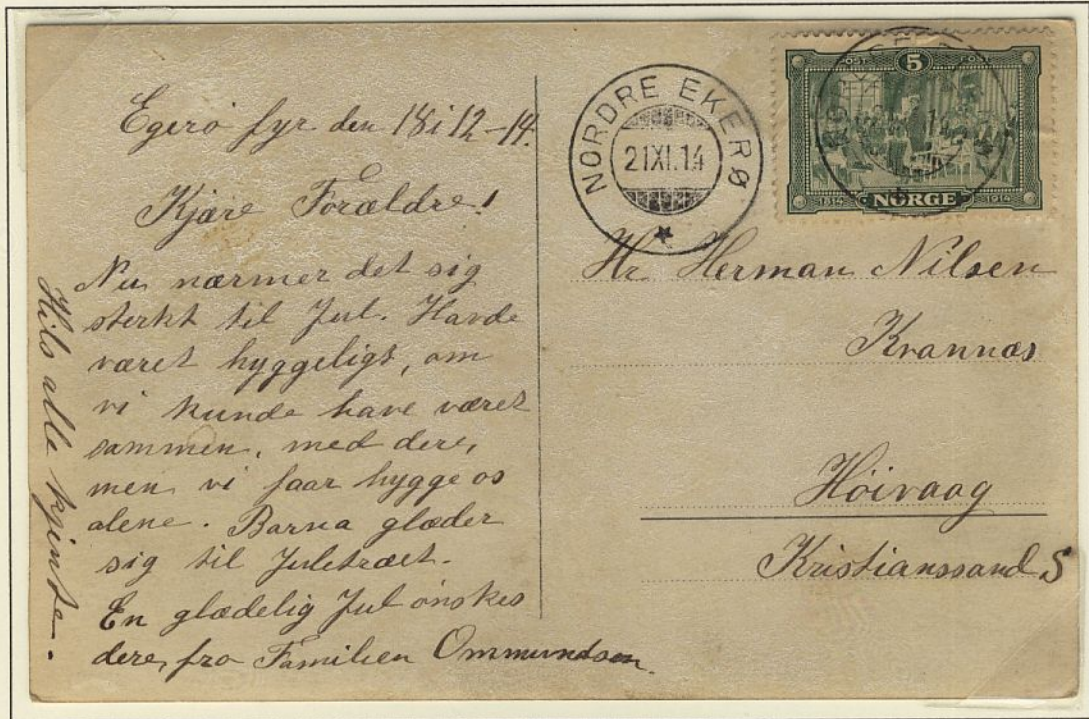 Egerø fyr den 18i 12-14.
Kjære Forældre!
Nu nærmer det sig
sterkt til Jul. Havde
været hyggeligt, om
vi kunde have været
sammen, med dere,
men vi faar hygge os
alene. Barna glæder
sig til Juletræet.
En glædelig Jul ønskes
dere, fra Familien Ommundsen.
Hils alle kjente.
NORDRE EKERØ
21XI.14
POST 5 POST
1814 NORGE 1914
Hr Herman Nilsen
Krannæs
Høivaag
Kristianssand S